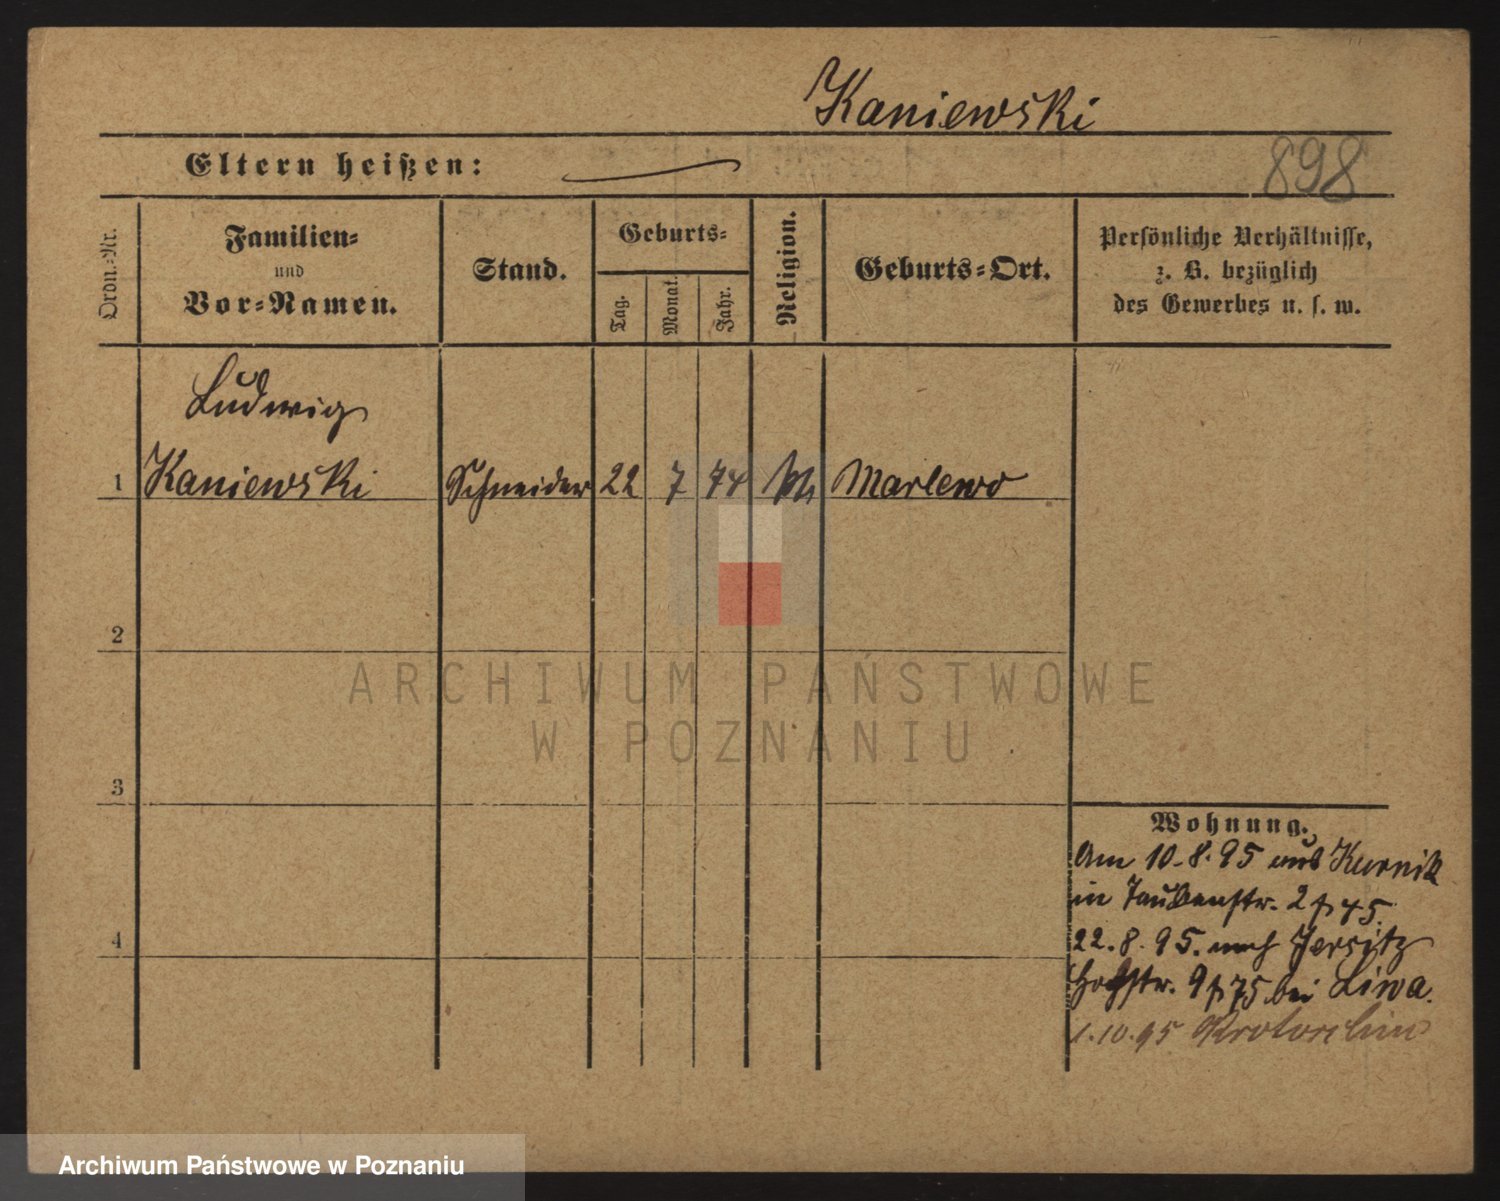 Kaniewski
Eltern heißen:
898
Ordn.-Nr.
Familien-
und
Vor-Namen.
Stand.
Geburts-
Tag.
Monat.
Jahr.
Religion.
Geburts-Ort.
Persönliche Verhältnisse,
z. B. bezüglich
des Gewerbes u. s. w.
Ludwig
1 Kaniewski Schneider 22 7 74 kth Marlewo
2
ARCHIWUM PAŃSTWOWE
W POZNANIU
3
Wohnung.
Am 10.8.95 aus Kurnik
in Taubenstr. 2
4
22.8.95. nach Jersitz
Hochstr. 9 bei Liwa.
1.10.95 Krotoschin
Archiwum Państwowe w Poznaniu